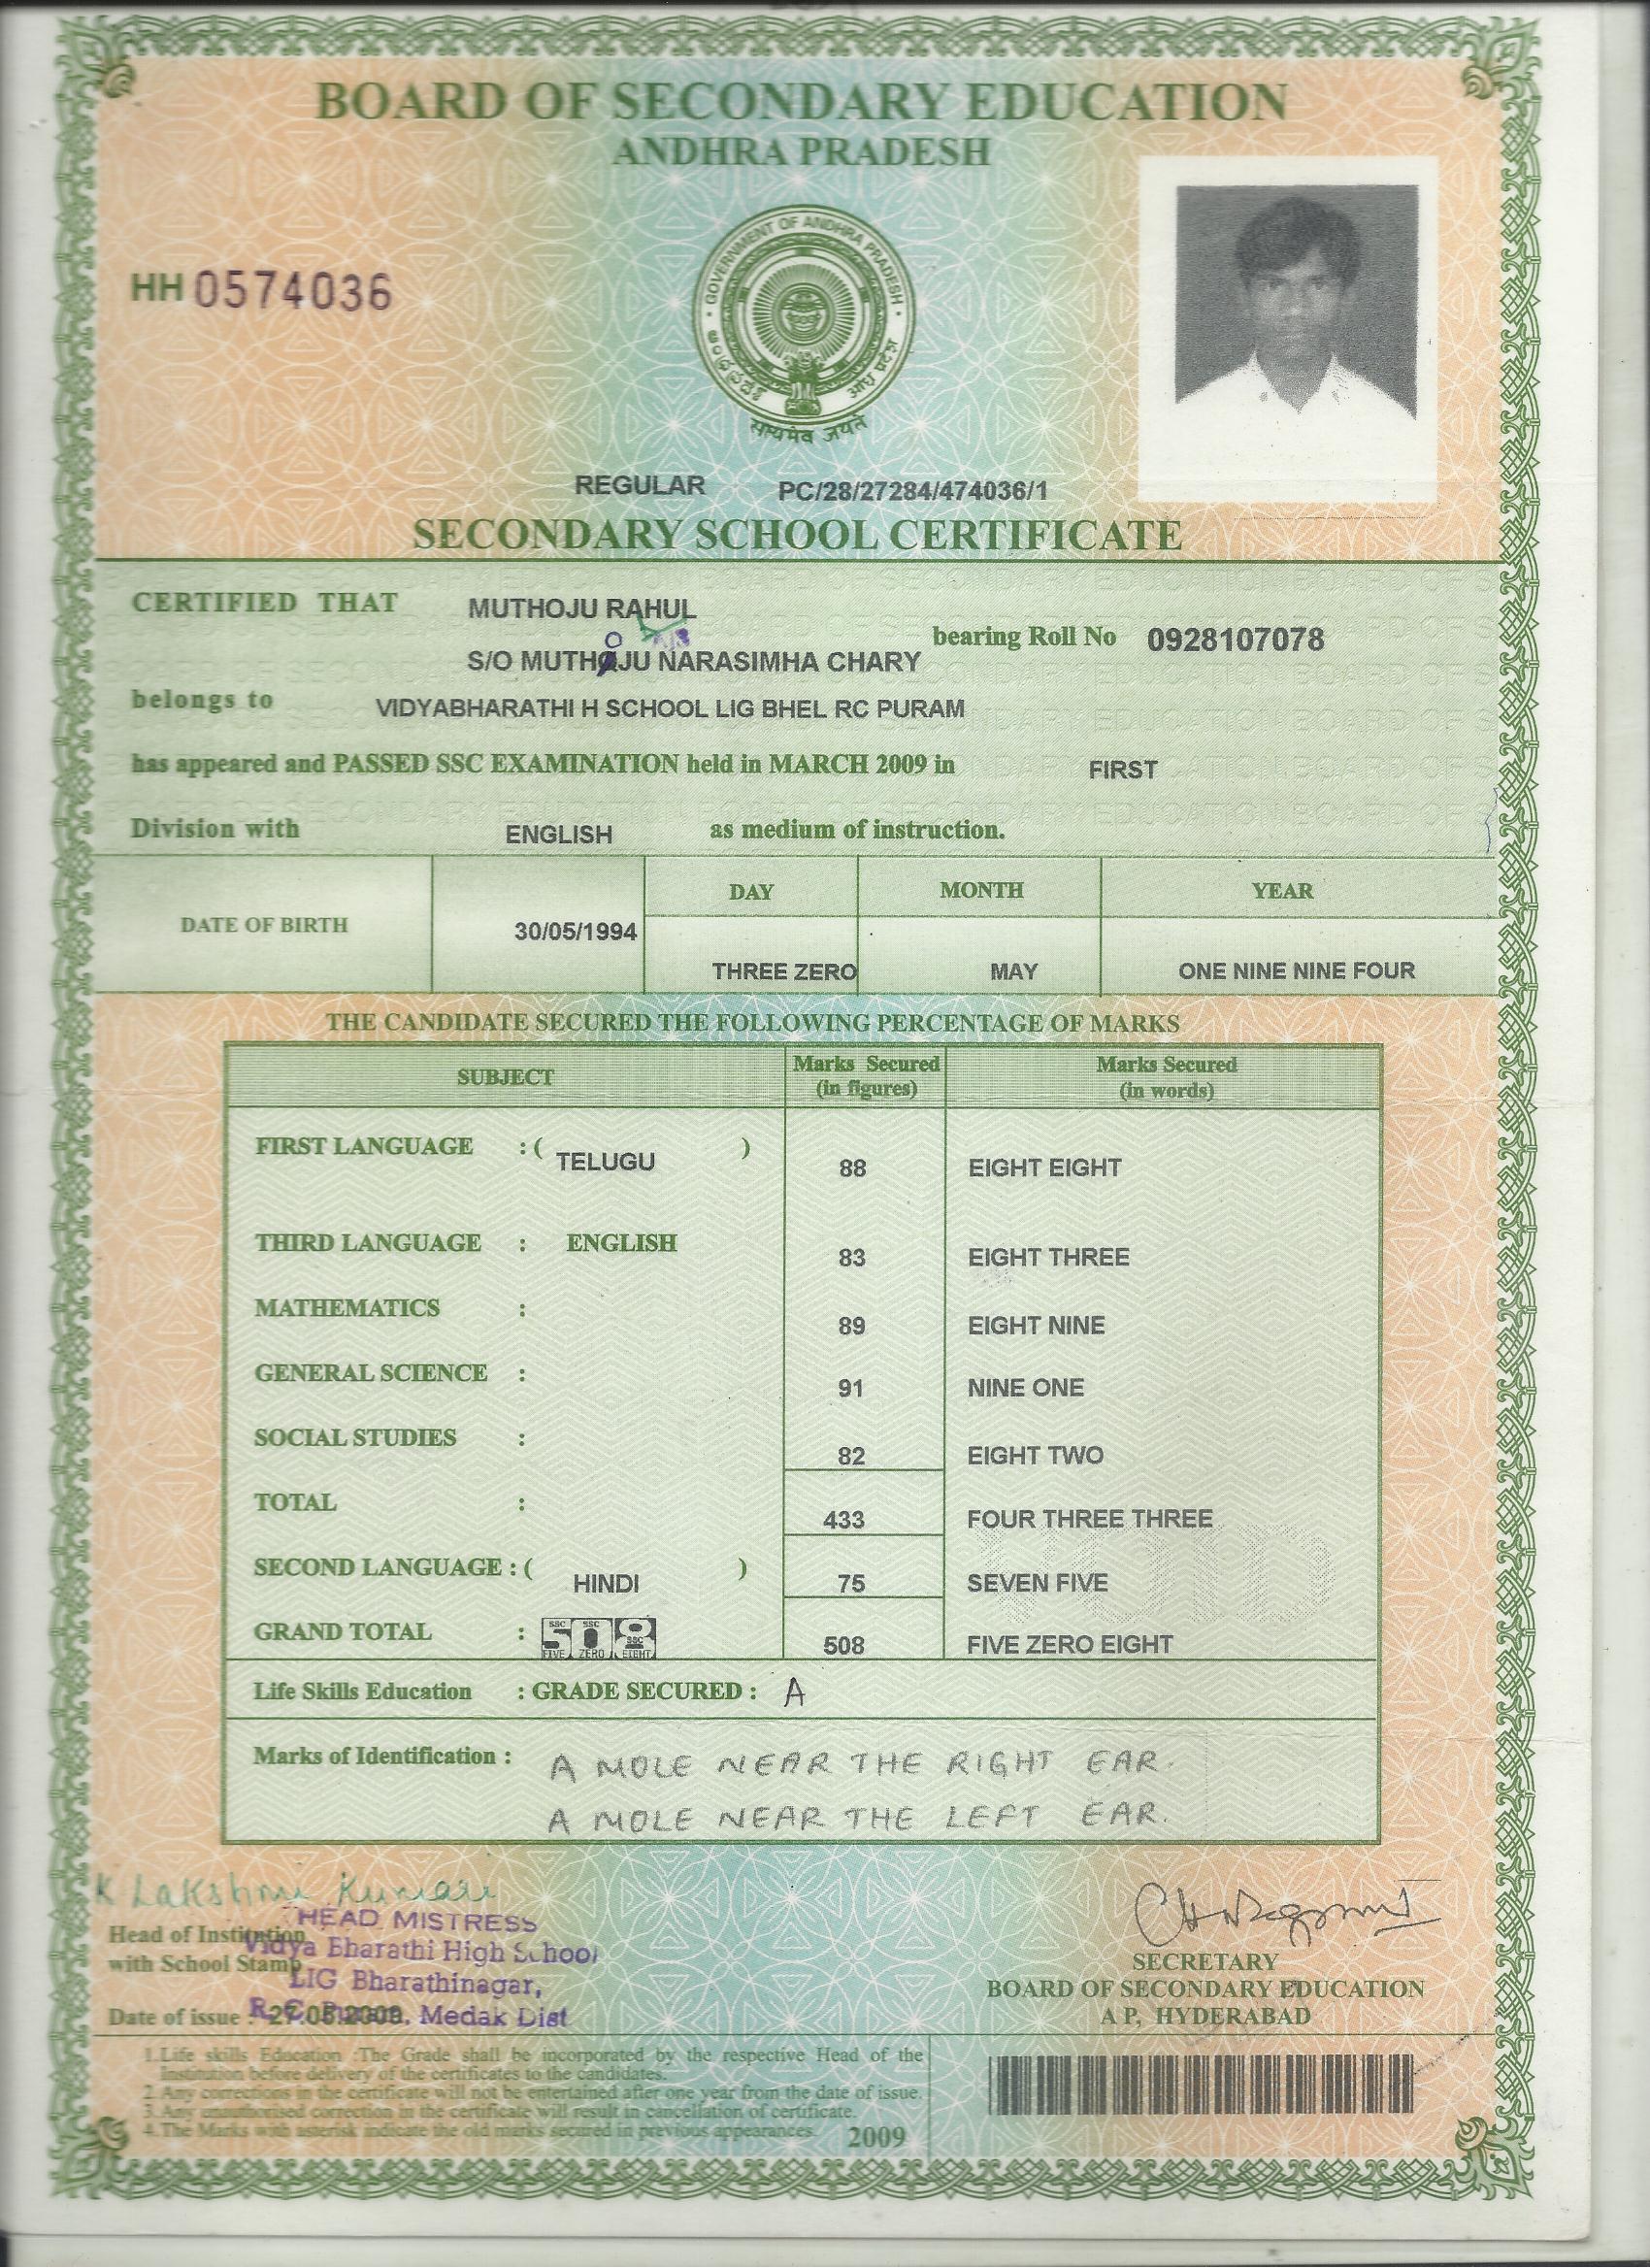 BOARD OF SECONDARY EDUCATION
ANDHRA PRADESH
GOVERNMENT OF ANDHRA PRADESH
सत्यमेव जयते
HH 0574036
REGULAR PC/28/27284/474036/1
SECONDARY SCHOOL CERTIFICATE
CERTIFIED THAT MUTHOJU RAHUL
S/O MUTHOJU NARASIMHA CHARY bearing Roll No 0928107078
belongs to VIDYABHARATHI H SCHOOL LIG BHEL RC PURAM
has appeared and PASSED SSC EXAMINATION held in MARCH 2009 in FIRST
Division with ENGLISH as medium of instruction.
DAY MONTH YEAR
DATE OF BIRTH 30/05/1994
THREE ZERO MAY ONE NINE NINE FOUR
THE CANDIDATE SECURED THE FOLLOWING PERCENTAGE OF MARKS
SUBJECT Marks Secured (in figures) Marks Secured (in words)
FIRST LANGUAGE : ( TELUGU ) 88 EIGHT EIGHT
THIRD LANGUAGE : ENGLISH 83 EIGHT THREE
MATHEMATICS : 89 EIGHT NINE
GENERAL SCIENCE : 91 NINE ONE
SOCIAL STUDIES : 82 EIGHT TWO
TOTAL : 433 FOUR THREE THREE
SECOND LANGUAGE : ( HINDI ) 75 SEVEN FIVE
GRAND TOTAL : 508 508 FIVE ZERO EIGHT
SSC SSC SSC
FIVE ZERO EIGHT
Life Skills Education : GRADE SECURED : A
Marks of Identification : A MOLE NEAR THE RIGHT EAR.
A MOLE NEAR THE LEFT EAR.
K Lakshmi Kumari
HEAD MISTRESS
Head of Institution
Vidya Bharathi High School
with School Stamp
LIG Bharathinagar,
Date of issue : 27.05.2009
R. C. Puram, Medak Dist
SECRETARY
BOARD OF SECONDARY EDUCATION
A P, HYDERABAD
1.Life skills Education :The Grade shall be incorporated by the respective Head of the
Institution before delivery of the certificates to the candidates.
2. Any corrections in the certificate will not be entertained after one year from the date of issue.
3. Any unauthorised correction in the certificate will result in cancellation of certificate.
4. The Marks with asterisk indicate the old marks secured in previous appearances.
2009